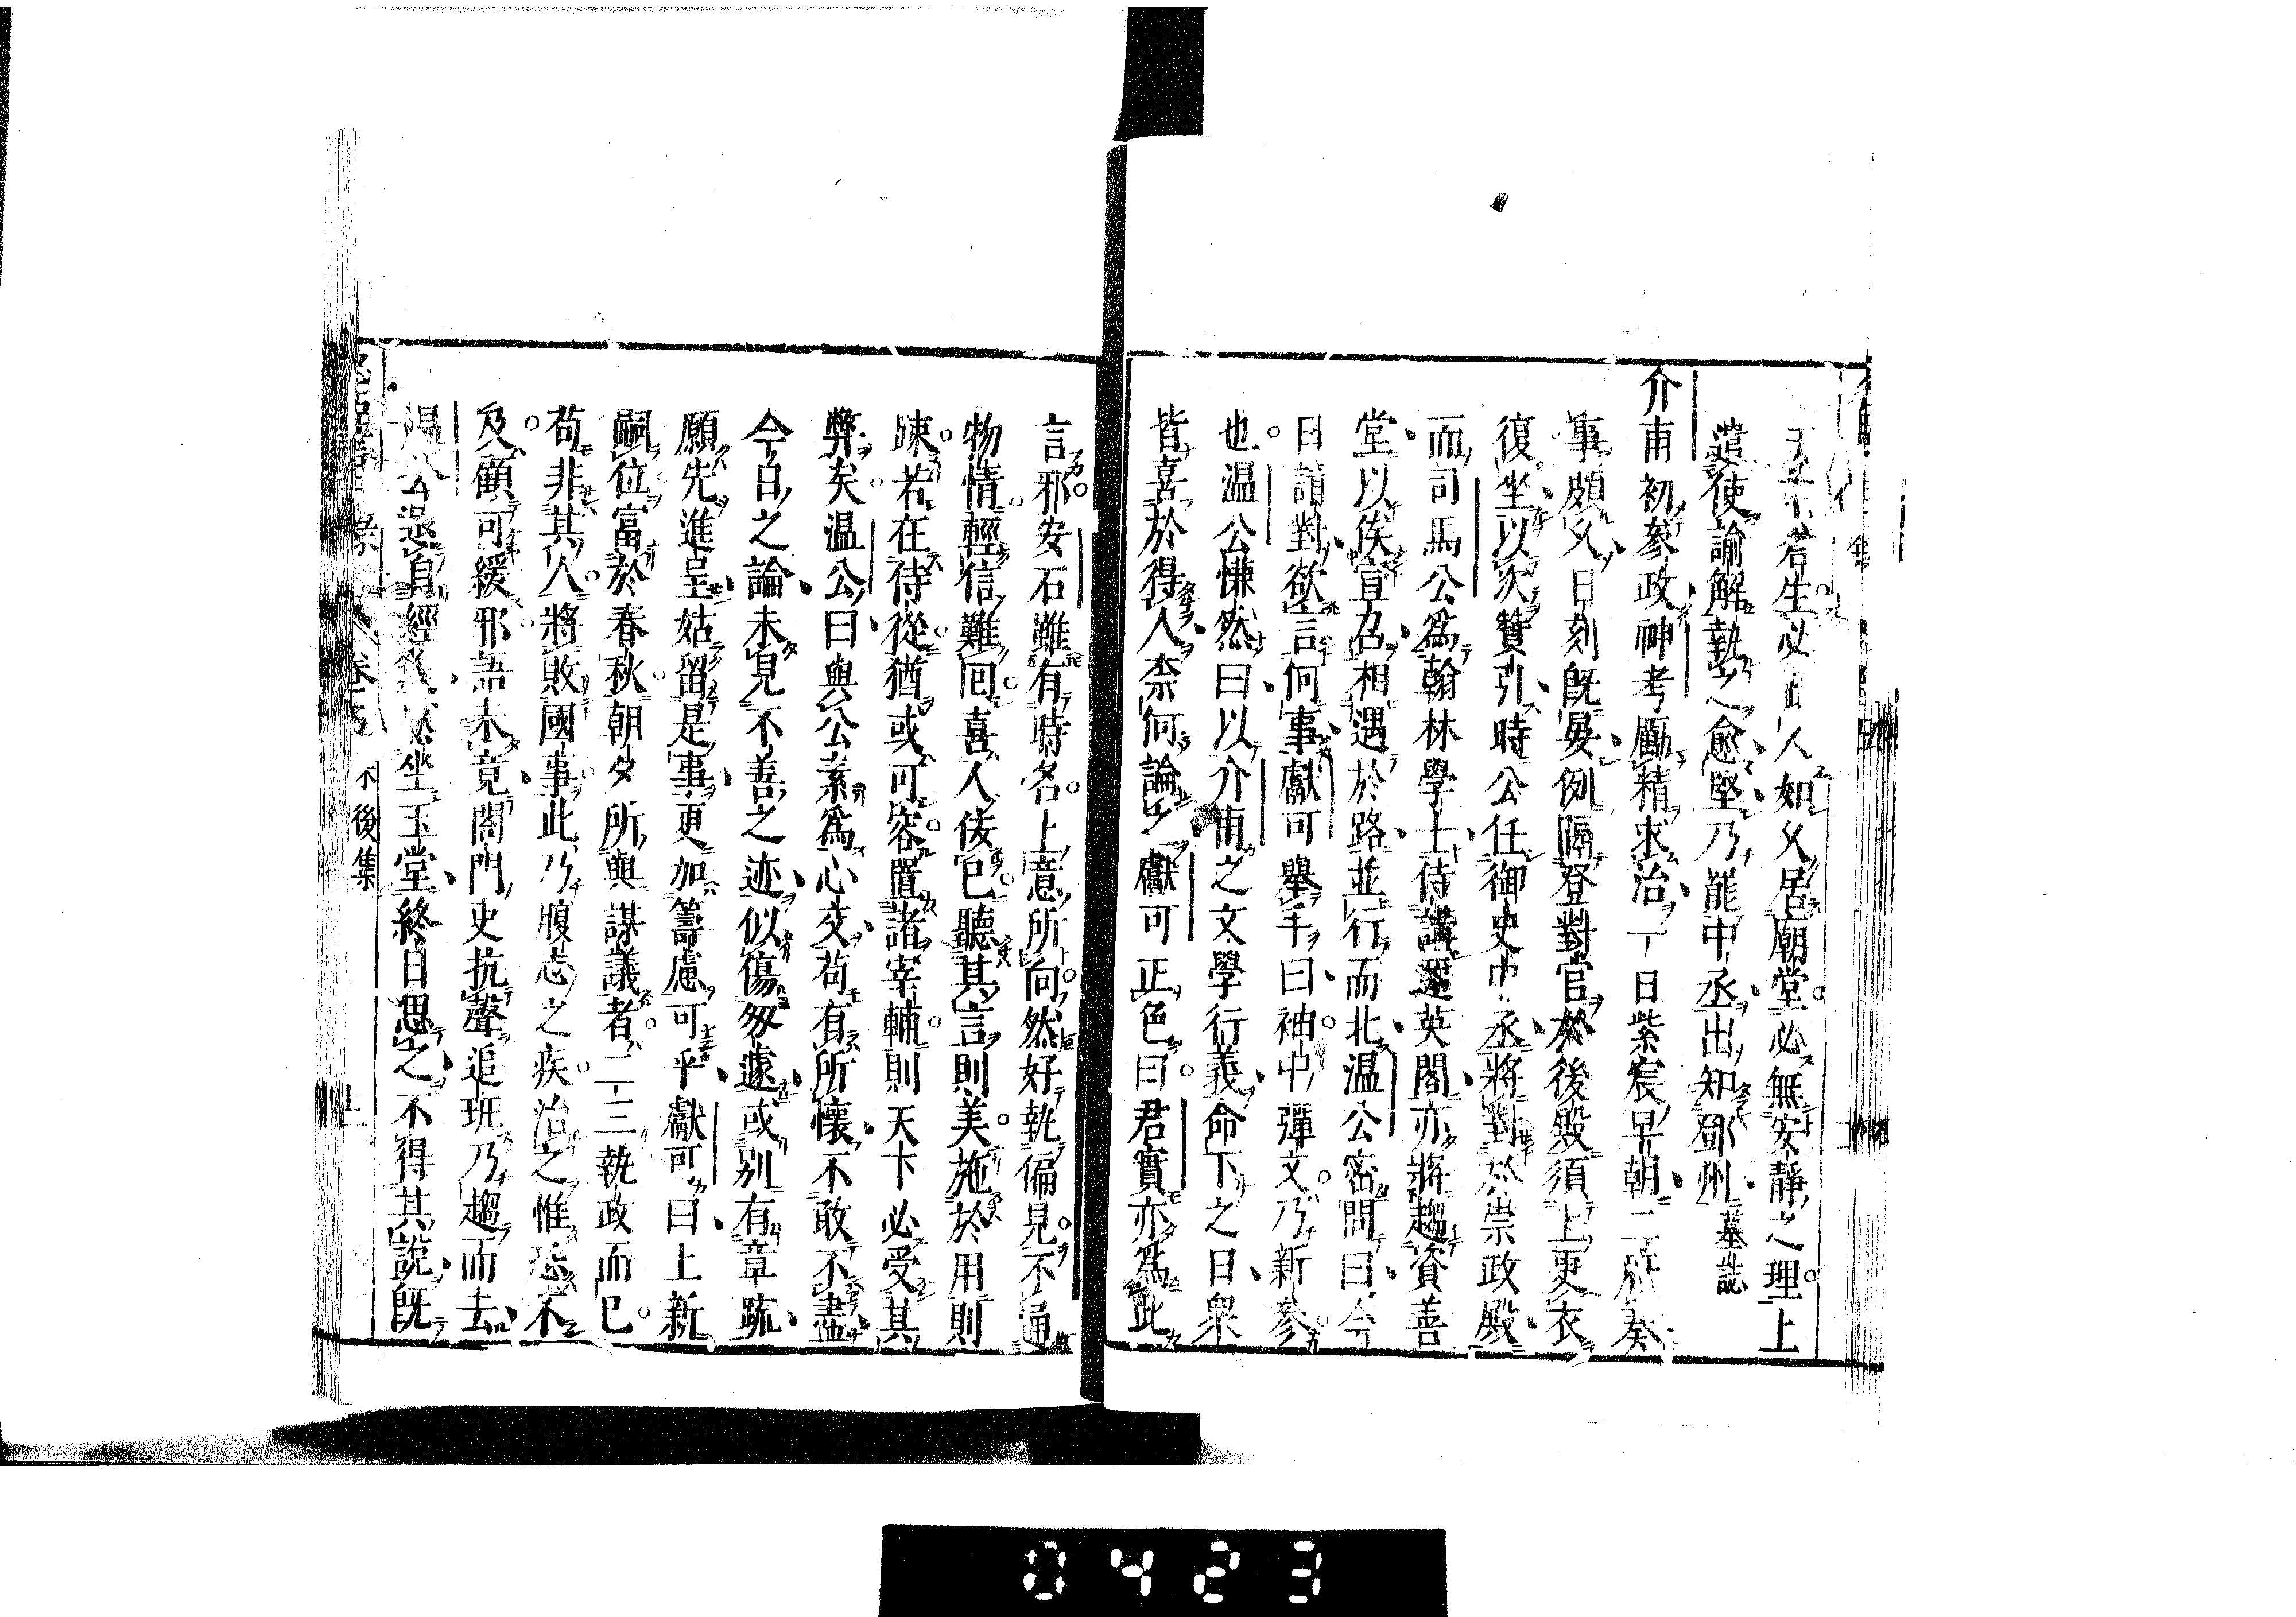 下蒼生必此人如久居廟堂必無安靜之理上
遣使諭解執之愈堅乃罷中丞出知鄧州墓誌
介甫初參政神考勵精求治一日紫宸早朝二府奏
事頗久日刻既晏例隔登對官於後殿須上更衣
復坐以次贊引時公任御史中丞將對於崇政殿
而司馬公爲翰林學士侍講邇英閣亦將趨資善
堂以俟宣召相遇於路並行而北温公密問曰今
日請對欲言何事獻可舉手曰袖中彈文乃新參
也温公愕然曰以介甫之文學行義命下之日衆
皆喜於得人柰何論之獻可正色曰君實亦爲此
言邪安石雖有時名上意所向然好執偏見不通
物情輕信難囘喜人佞己聽其言則美施於用則
疎若在侍從猶或可容置諸宰輔則天下必受其
弊矣温公曰與公素爲心交苟有所懷不敢不盡
今日之論未見不善之迹似傷匆遽或别有章疏
願先進呈姑留是事更加籌慮可乎獻可曰上新
嗣位富於春秋朝夕所與謀議者二三執政而已
苟非其人將敗國事此乃腹心之疾治之惟恐不
及顧可緩邪語未竟閤門吏抗聲追班乃趨而去
温公退自經筵坐玉堂終日思之不得其説既
後集
0423